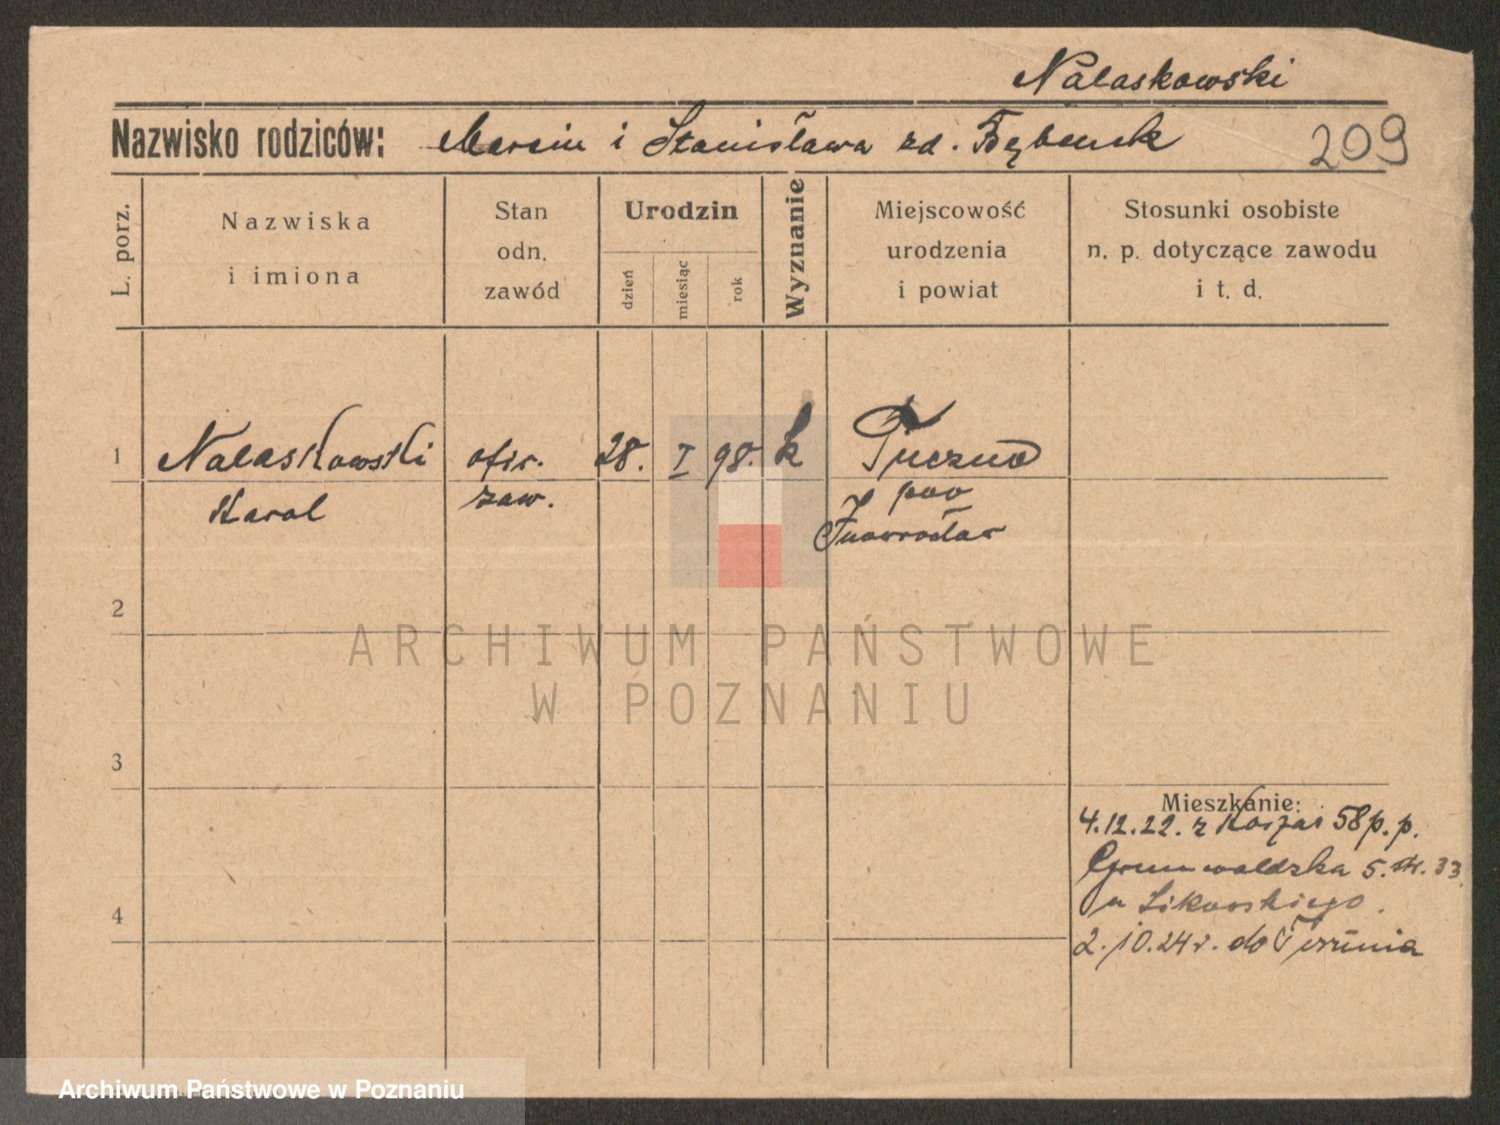 Nalaskowski
Nazwisko rodziców: Marcin i Stanisława zd. Bębenek
209
L. porz.
Nazwiska
i imiona
Stan
odn.
zawód
Urodzin
dzień
miesiąc
rok
Wyznanie
Miejscowość
urodzenia
i powiat
Stosunki osobiste
n. p. dotyczące zawodu
i t. d.
1 Nalaskowski ofic. 28. I 98. k Tuczno
Karol zaw. pow
Inowrocław
2
3
4
Mieszkanie:
4.12.22. z Koszar 58 p. p.
Grunwaldzka 5. 33.
u Sikorskiego.
2.10.24 r. do Torunia
ARCHIWUM PAŃSTWOWE
W POZNANIU
Archiwum Państwowe w Poznaniu